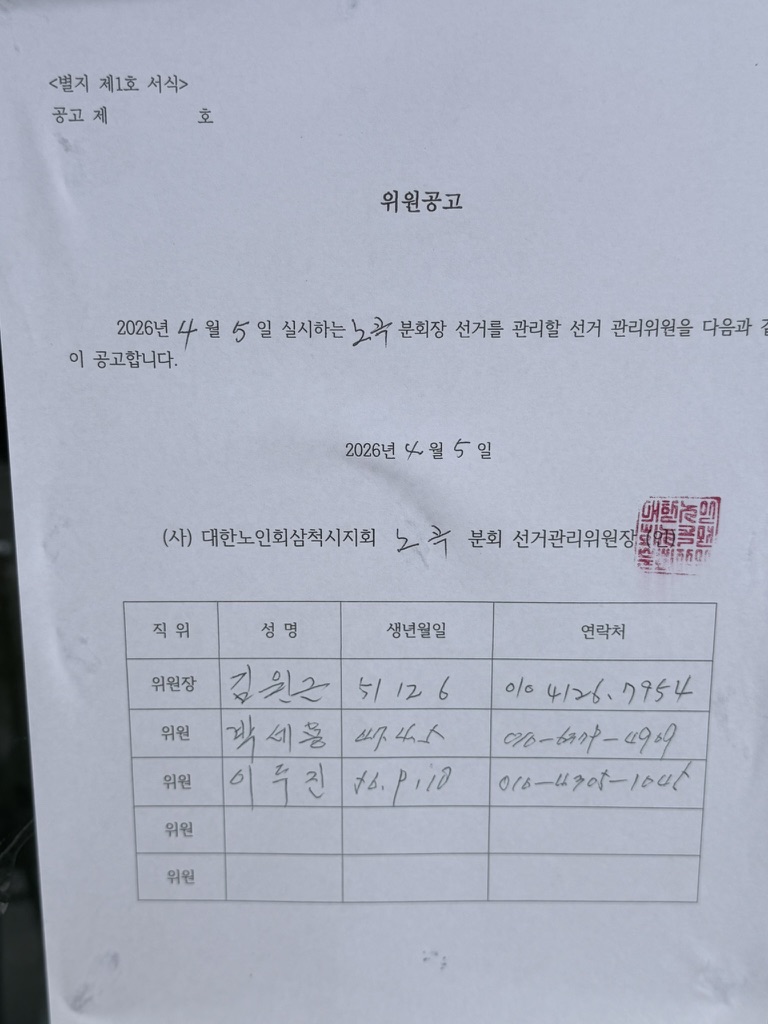 <별지 제1호 서식>
공고 제 호
위원공고
2026년 4월 5일 실시하는 노곡 분회장 선거를 관리할 선거 관리위원을 다음과 같
이 공고합니다.
2026년 4월 5일
(사) 대한노인회삼척시지회 노곡 분회 선거관리위원장
직 위 성 명 생년월일 연락처
위원장 김원근 51 12 6 010 4126.7954
위원 박세용 47.4.5
위원 이두진 010-4305-1045
위원
위원